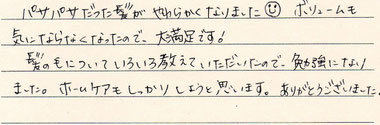 パサパサだった髪がやわらかくなりました☺ ボリュームも
気にならなくなったので、大満足です!
髪の毛についていろいろ教えていただいたので、勉強になり
ました。ホームケアもしっかりしようと思います。ありがとうございました。